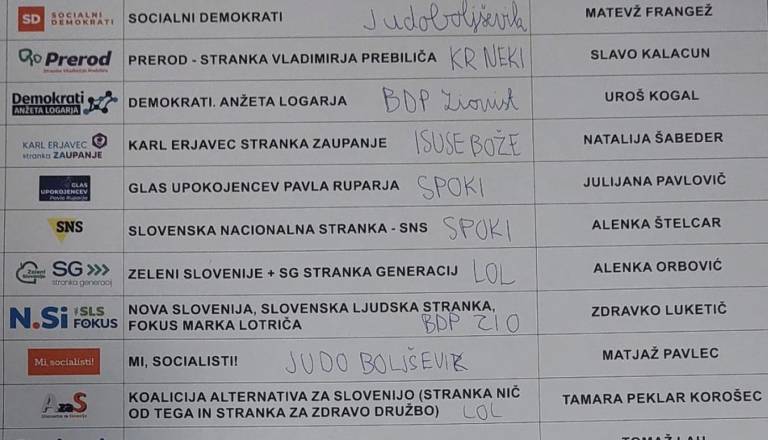 SD SOCIALNI DEMOKRATI SOCIALNI DEMOKRATI Judoboljševik MATEVŽ FRANGEŽ
Prerod Stranka Vladimirja Prebiliča PREROD - STRANKA VLADIMIRJA PREBILIČA KR NEKI SLAVO KALACUN
Demokrati ANŽETA LOGARJA DEMOKRATI. ANŽETA LOGARJA BDP Zionist UROŠ KOGAL
KARL ERJAVEC stranka ZAUPANJE KARL ERJAVEC STRANKA ZAUPANJE ISUSE BOŽE NATALIJA ŠABEDER
GLAS UPOKOJENCEV Pavla Ruparja GLAS UPOKOJENCEV PAVLA RUPARJA SPOKI JULIJANA PAVLOVIČ
SNS SLOVENSKA NACIONALNA STRANKA - SNS SPOKI ALENKA ŠTELCAR
Zeleni Slovenije SG stranka generacij ZELENI SLOVENIJE + SG STRANKA GENERACIJ LOL ALENKA ORBOVIĆ
N.Si SLS FOKUS NOVA SLOVENIJA, SLOVENSKA LJUDSKA STRANKA,
FOKUS MARKA LOTRIČA BDP ZIO ZDRAVKO LUKETIČ
Mi, socialisti! MI, SOCIALISTI! JUDO BOLJŠEVIK MATJAŽ PAVLEC
AzaS KOALICIJA ALTERNATIVA ZA SLOVENIJO (STRANKA NIČ
OD TEGA IN STRANKA ZA ZDRAVO DRUŽBO) LOL TAMARA PEKLAR KOROŠEC